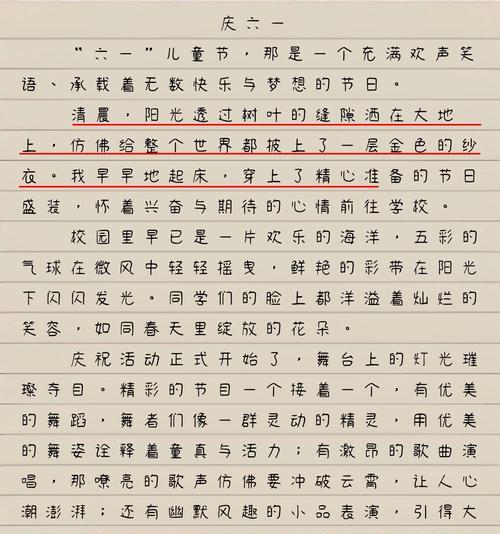 庆六一
“六一”儿童节，那是一个充满欢声笑
语、承载着无数快乐与梦想的节日。
清晨，阳光透过树叶的缝隙洒在大地
上，仿佛给整个世界都披上了一层金色的纱
衣。我早早地起床，穿上了精心准备的节日
盛装，怀着兴奋与期待的心情前往学校。
校园里早已是一片欢乐的海洋，五彩的
气球在微风中轻轻摇曳，鲜艳的彩带在阳光
下闪闪发光。同学们的脸上都洋溢着灿烂的
笑容，如同春天里绽放的花朵。
庆祝活动正式开始了，舞台上的灯光璀
璨夺目。精彩的节目一个接着一个，有优美
的舞蹈，舞者们像一群灵动的精灵，用优美
的舞姿诠释着童真与活力；有激昂的歌曲演
唱，那嘹亮的歌声仿佛要冲破云霄，让人心
潮澎湃；还有幽默风趣的小品表演，引得大